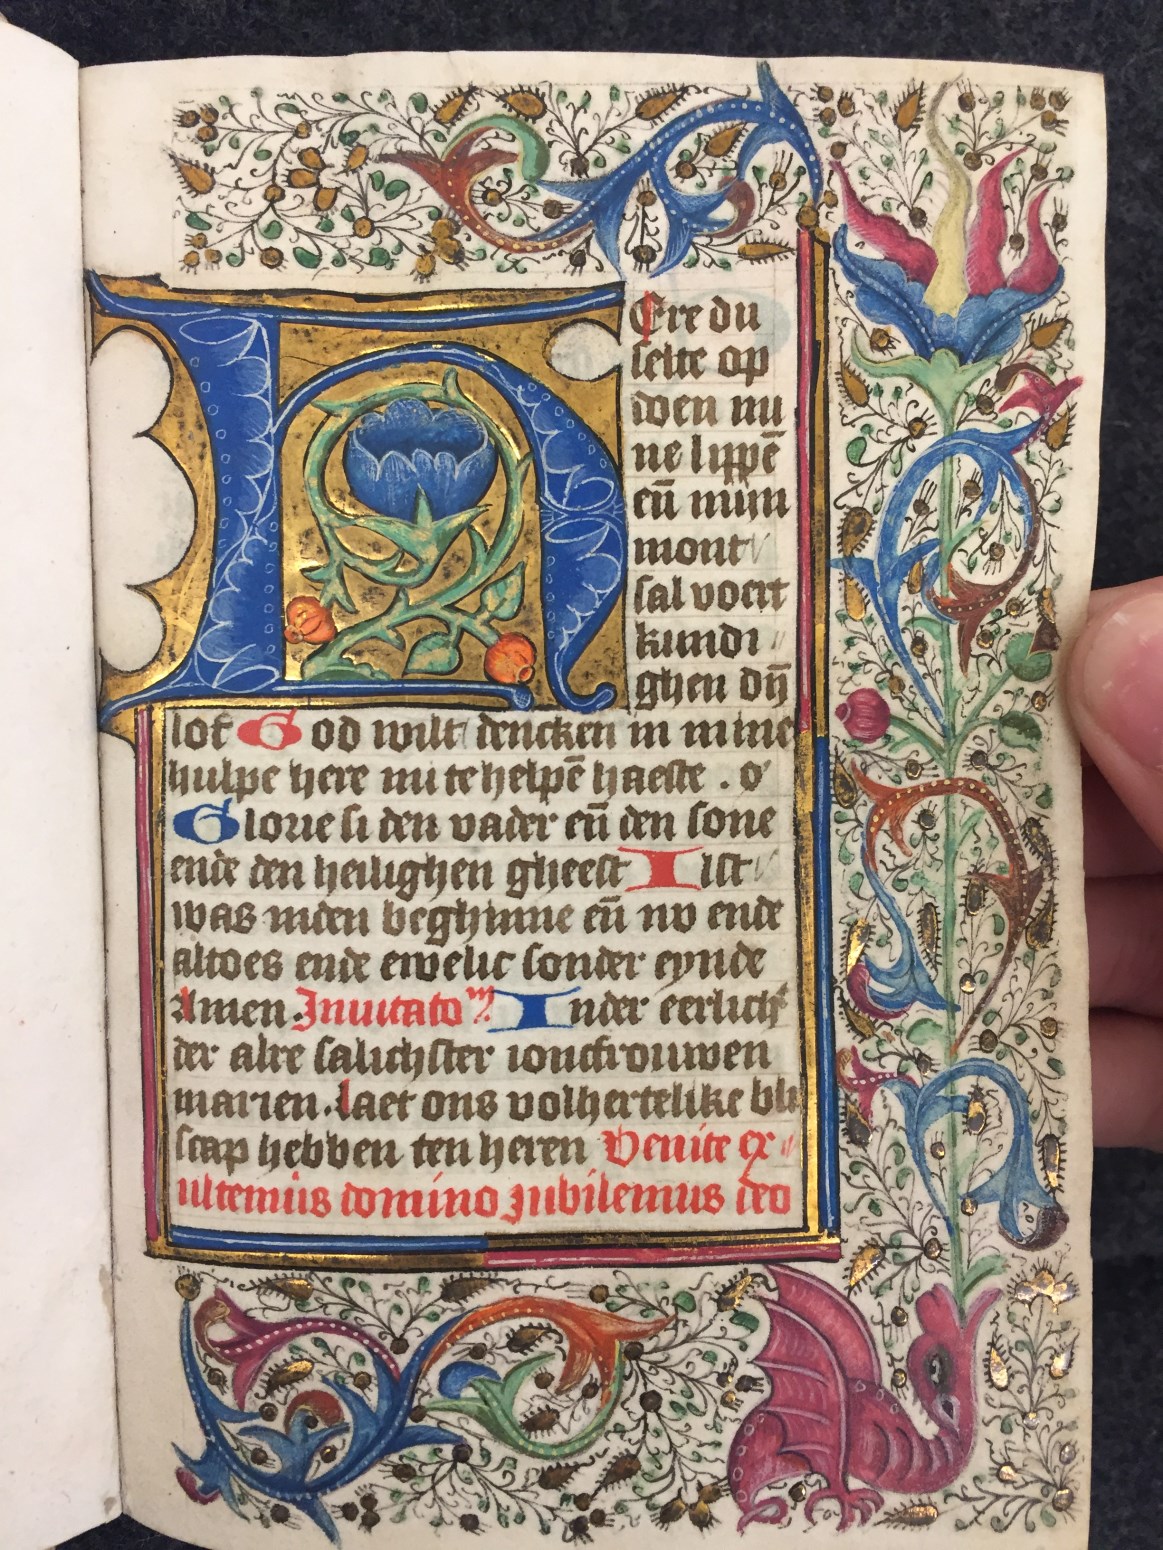 HEre du
selte op
doen mi
ne lippē
eñ mijn
mont
sal voert
kundi
ghen dȳ
lof God wilt dencken in mine
hulpe here mi te helpē haeste . o
Glorie si den vader eñ den sone
ende den heilighen gheest Alst
was inden beghinne eñ nv ende
altoes ende ewelic sonder eynde
Amen. Inuitatoᵐ In der eerlich
der alre salichster ioncfrouwen
marien. laet ons volhertelike bli
scap hebben ten heren Venite ex
ultemus domino Jubilemus deo